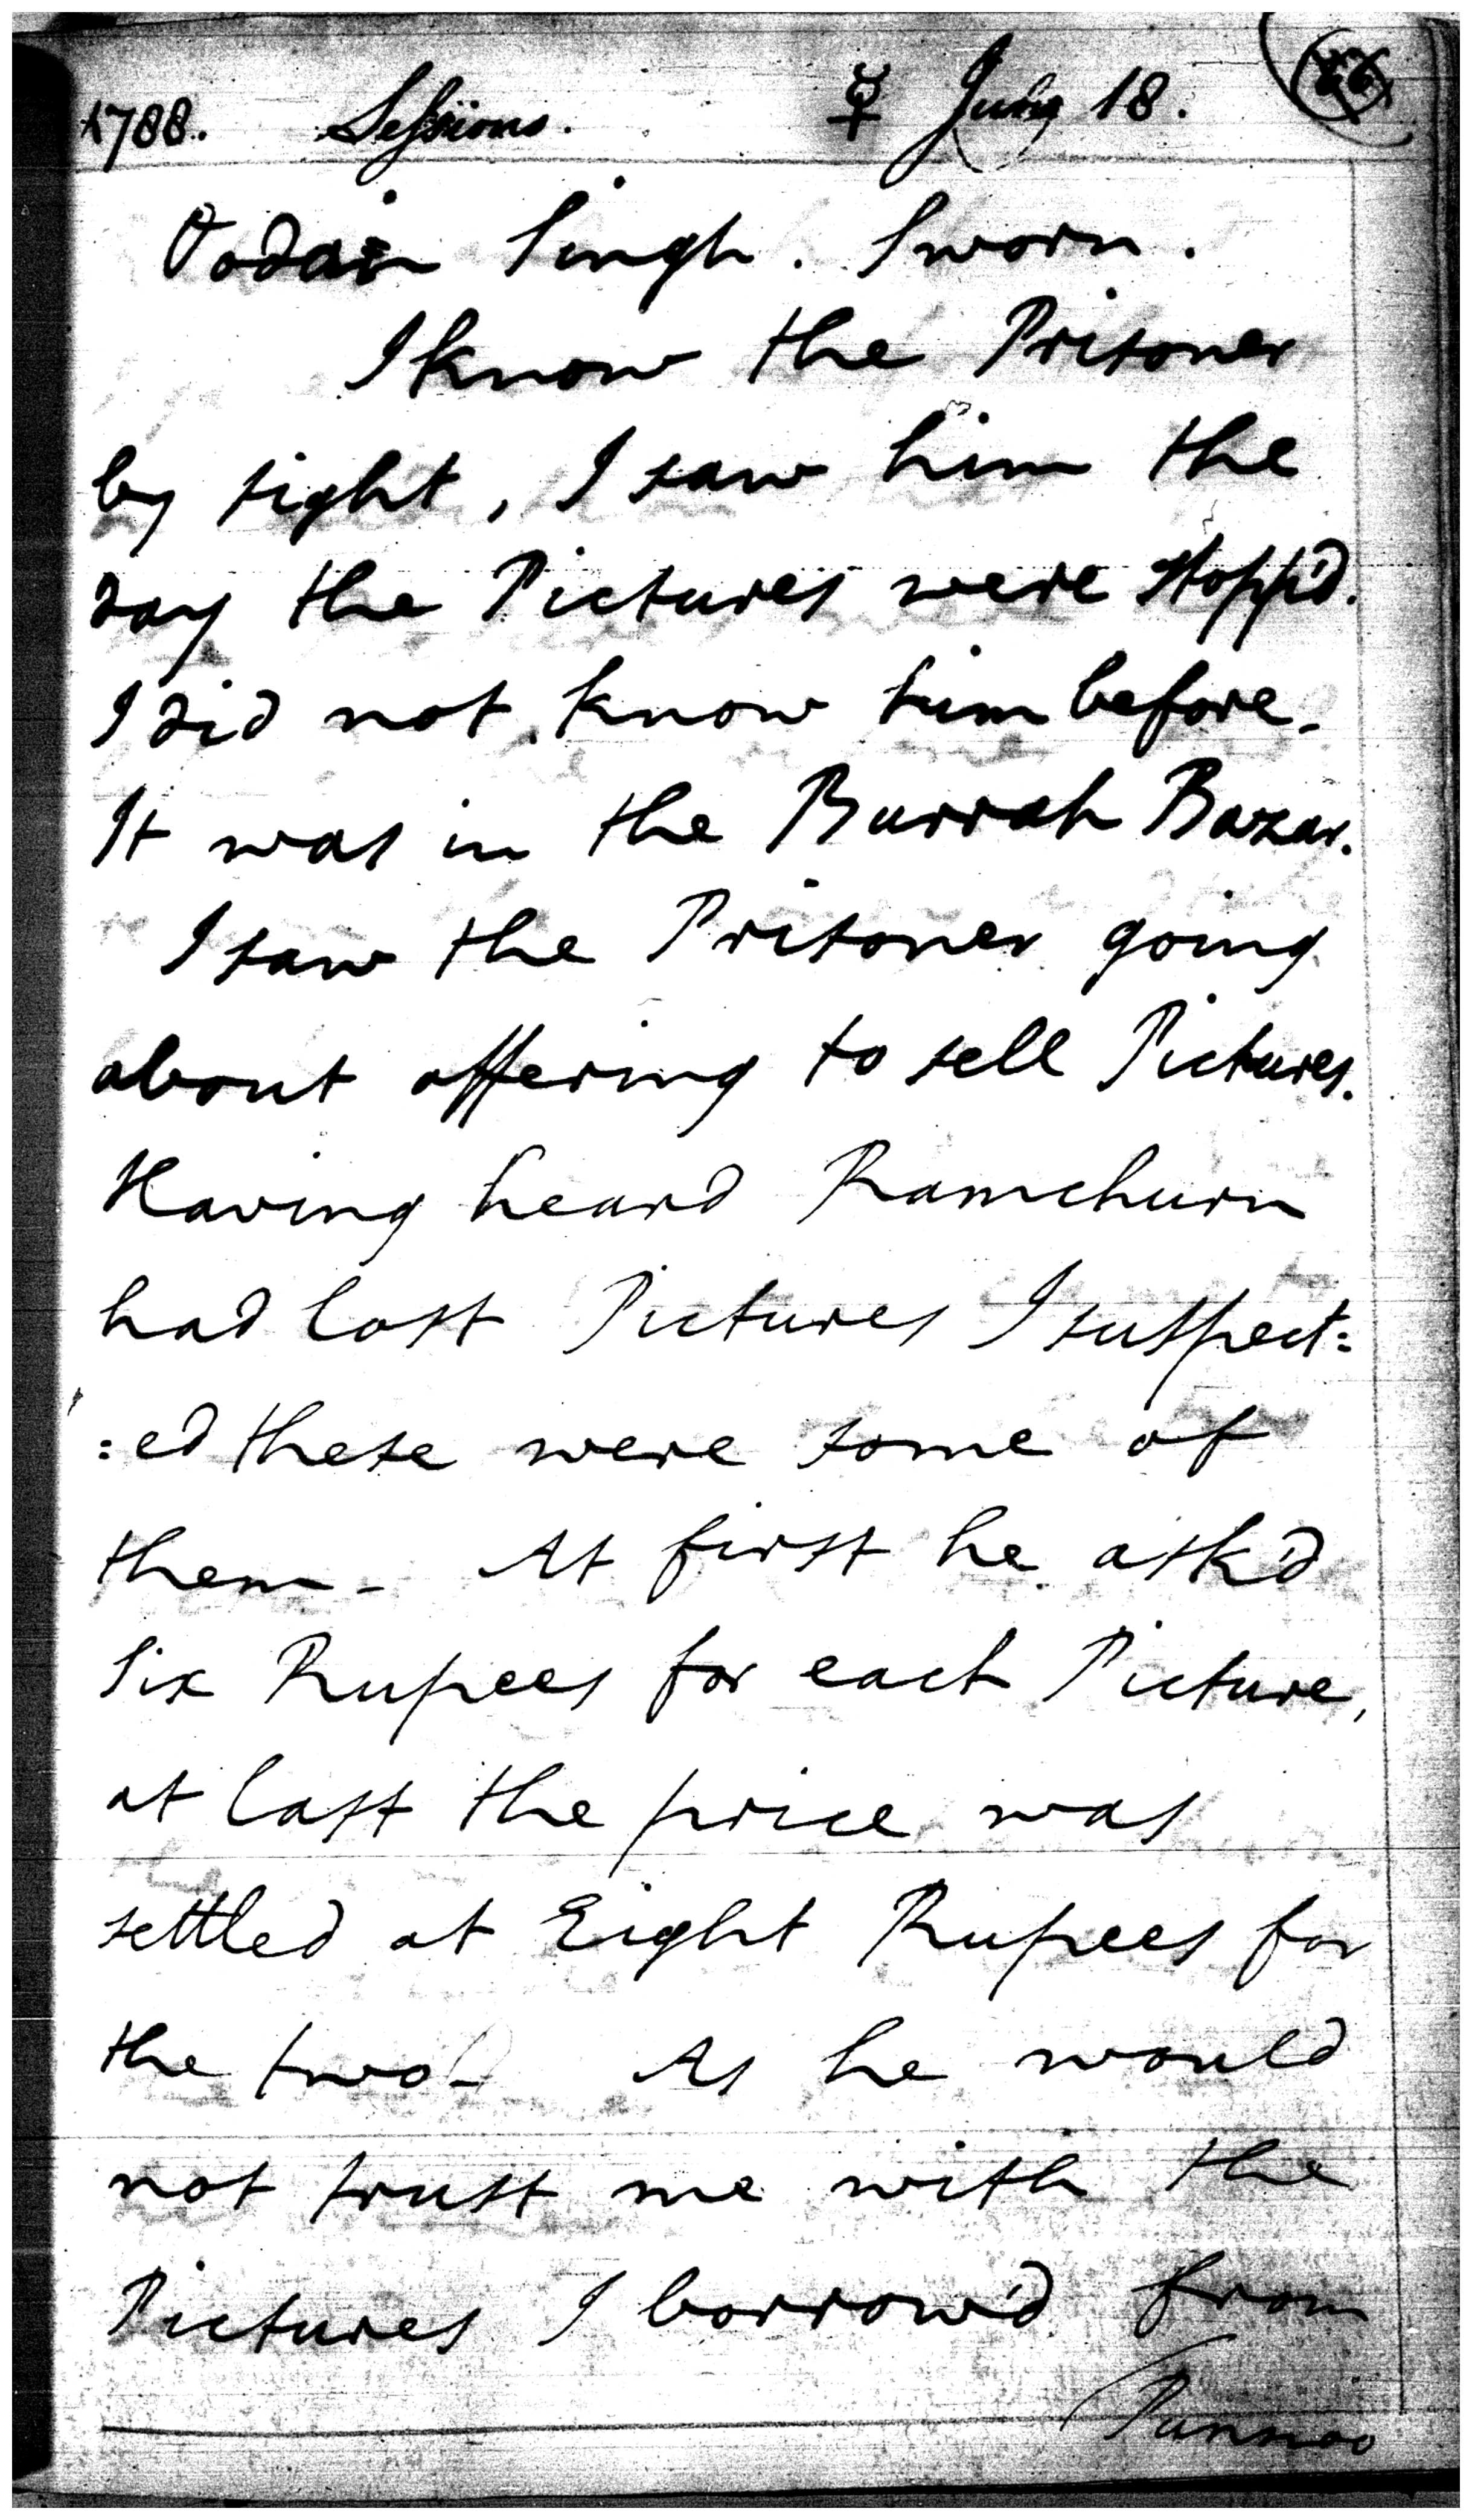 1788. Sessions. ☿ June 18.
Oodain Singh. Sworn.
I know the Prisoner
by sight, I saw him the
day the Pictures were stopp'd.
I did not know him before.
It was in the Burrah Bazar.
I saw the Prisoner going
about offering to sell Pictures.
Having heard Ramchurn
had lost Pictures I suspect=
=ed these were some of
them - At first he ask'd
Six Rupees for each Picture,
at last the price was
settled at Eight Rupees for
the two - As he would
not trust me with the
Pictures I borrow'd from
Punnoo